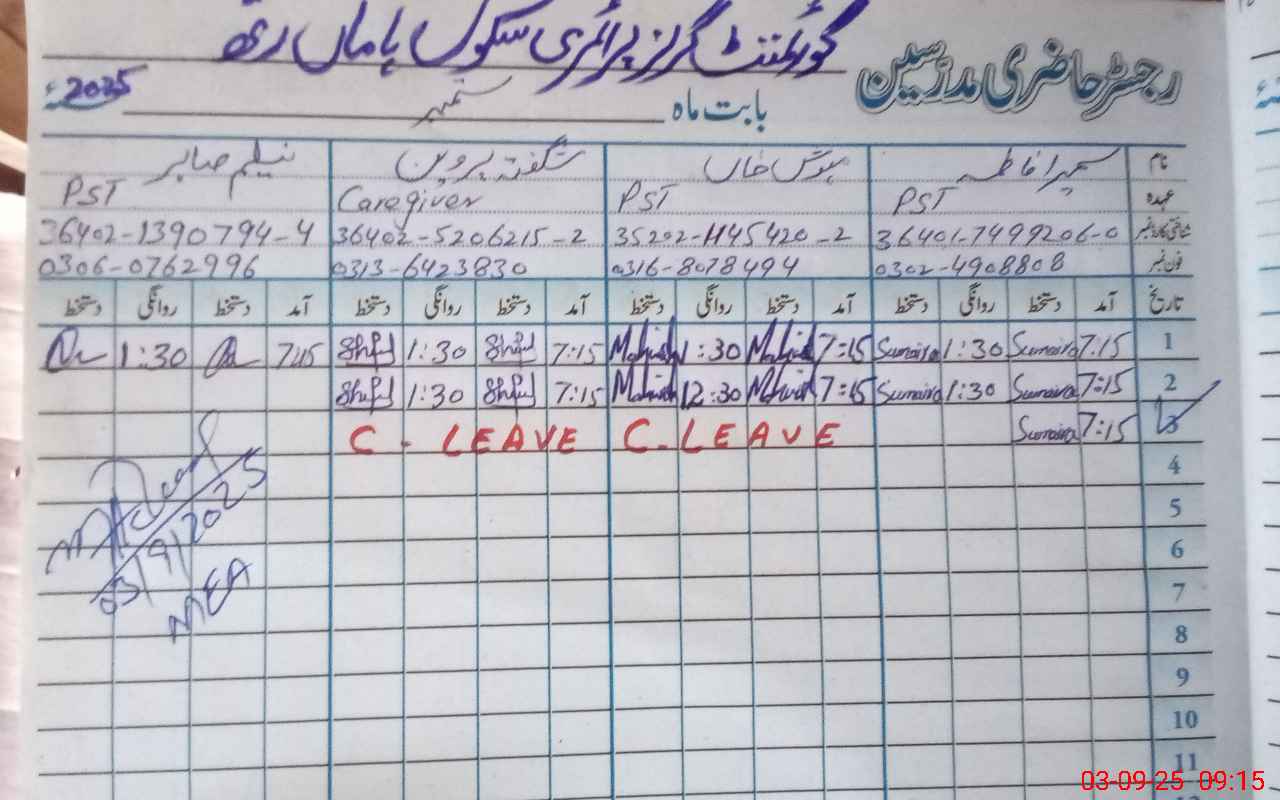 رجسٹر حاضری مدرسین گورنمنٹ گرلز پرائمری سکول
بابت ماہ ستمبر 2025ء
نام سمیرا فاطمہ مہوش خاں شگفتہ پروین نیلم صابر
عہدہ PST PST Caregiver PST
شناختی کارڈ نمبر 36401-7499206-0 35202-1145420-2 36402-5206215-2 36402-1390794-4
فون نمبر 0302-4908808 0316-8078494 0313-6423830 0306-0762996
تاریخ آمد دستخط روانگی دستخط آمد دستخط روانگی دستخط آمد دستخط روانگی دستخط آمد دستخط روانگی دستخط
1 7:15 Sumaira 1:30 Sumaira 7:15 Mahwish 1:30 Mahwish 7:15 1:30 7:15 1:30
2 7:15 Sumaira 1:30 Sumaira 7:15 Mahwish 12:30 Mahwish 7:15 1:30
3 7:15 Sumaira C-LEAVE C-LEAVE
4
5
6
7
8
9
10
11
03/9/2025
MEA
03-09-25 09:15